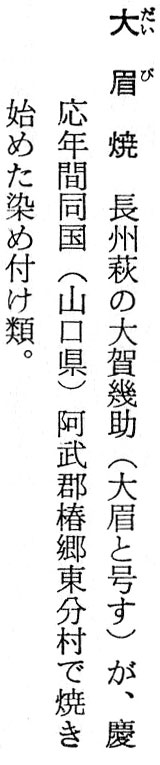 大眉焼　長州萩の大賀幾助（大眉と号す）が、慶
応年間同国（山口県）阿武郡椿郷東分村で焼き
始めた染め付け類。
だい
び